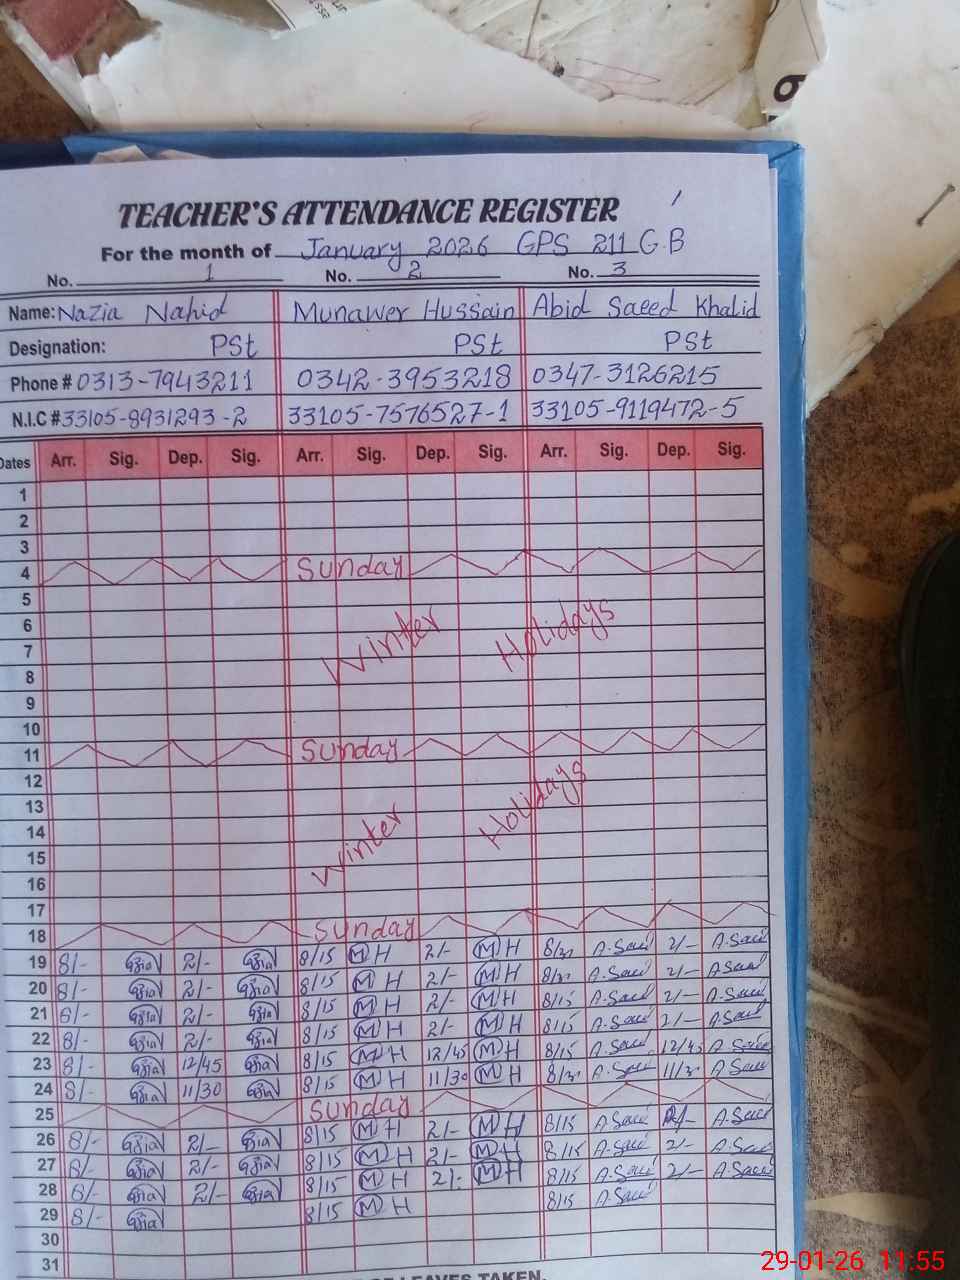 TEACHER'S ATTENDANCE REGISTER
For the month of January 2026 GPS 211 G.B
No. 1 No. 2 No. 3
Name: Nazia Nahid Munawer Hussain Abid Saeed Khalid
Designation: PSt PSt PSt
Phone # 0313-7943211 0342-3953218 0347-3126215
N.I.C # 33105-8931293-2 33105-7576527-1 33105-9119472-5
Dates Arr. Sig. Dep. Sig. Arr. Sig. Dep. Sig. Arr. Sig. Dep. Sig.
1
2
3
4 Sunday
5
6 Winter Holidays
7
8
9
10
11 Sunday
12
13
14 Winter Holidays
15
16
17
18 Sunday
19 8/- 2/- 8/15 M H 2/- M H A.Saeed 2/- A.Saeed
20 8/- 2/- 8/15 M H 2/- M H A.Saeed 2/- A.Saeed
21 8/- 2/- 8/15 M H 2/- M H 8/15 A.Saeed 2/- A.Saeed
22 8/- 2/- 8/15 M H 2/- M H 8/15 A.Saeed 2/- A.Saeed
23 8/- 12/45 8/15 M H 12/45 M H 8/15 A.Saeed 12/45 A.Saeed
24 8/- 11/30 8/15 M H 11/30 M H A.Saeed 11/30 A.Saeed
25 Sunday
26 8/- 2/- 8/15 M H 2/- M H 8/15 A.Saeed 2/- A.Saeed
27 8/- 2/- 8/15 M H 2/- M H 8/15 A.Saeed 2/- A.Saeed
28 8/- 2/- 8/15 M H 2/- M H 8/15 A.Saeed 2/- A.Saeed
29 8/- 8/15 M H 8/15 A.Saeed
30
31
LEAVES TAKEN.
29-01-26 11:55